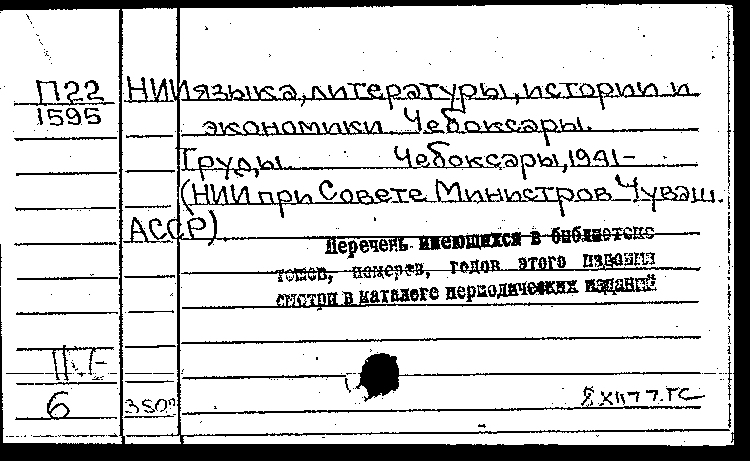 П22 НИИ языка, литературы, истории и
1595 экономики. Чебоксары.
Труды. Чебоксары, 1941-
(НИИ при Совете Министров Чуваш.
АССР)
Перечень имеющихся в библиотеке
томов, номеров, годов этого издания
смотри в каталоге периодических изданий
6 350п 8 XII 77. ГС